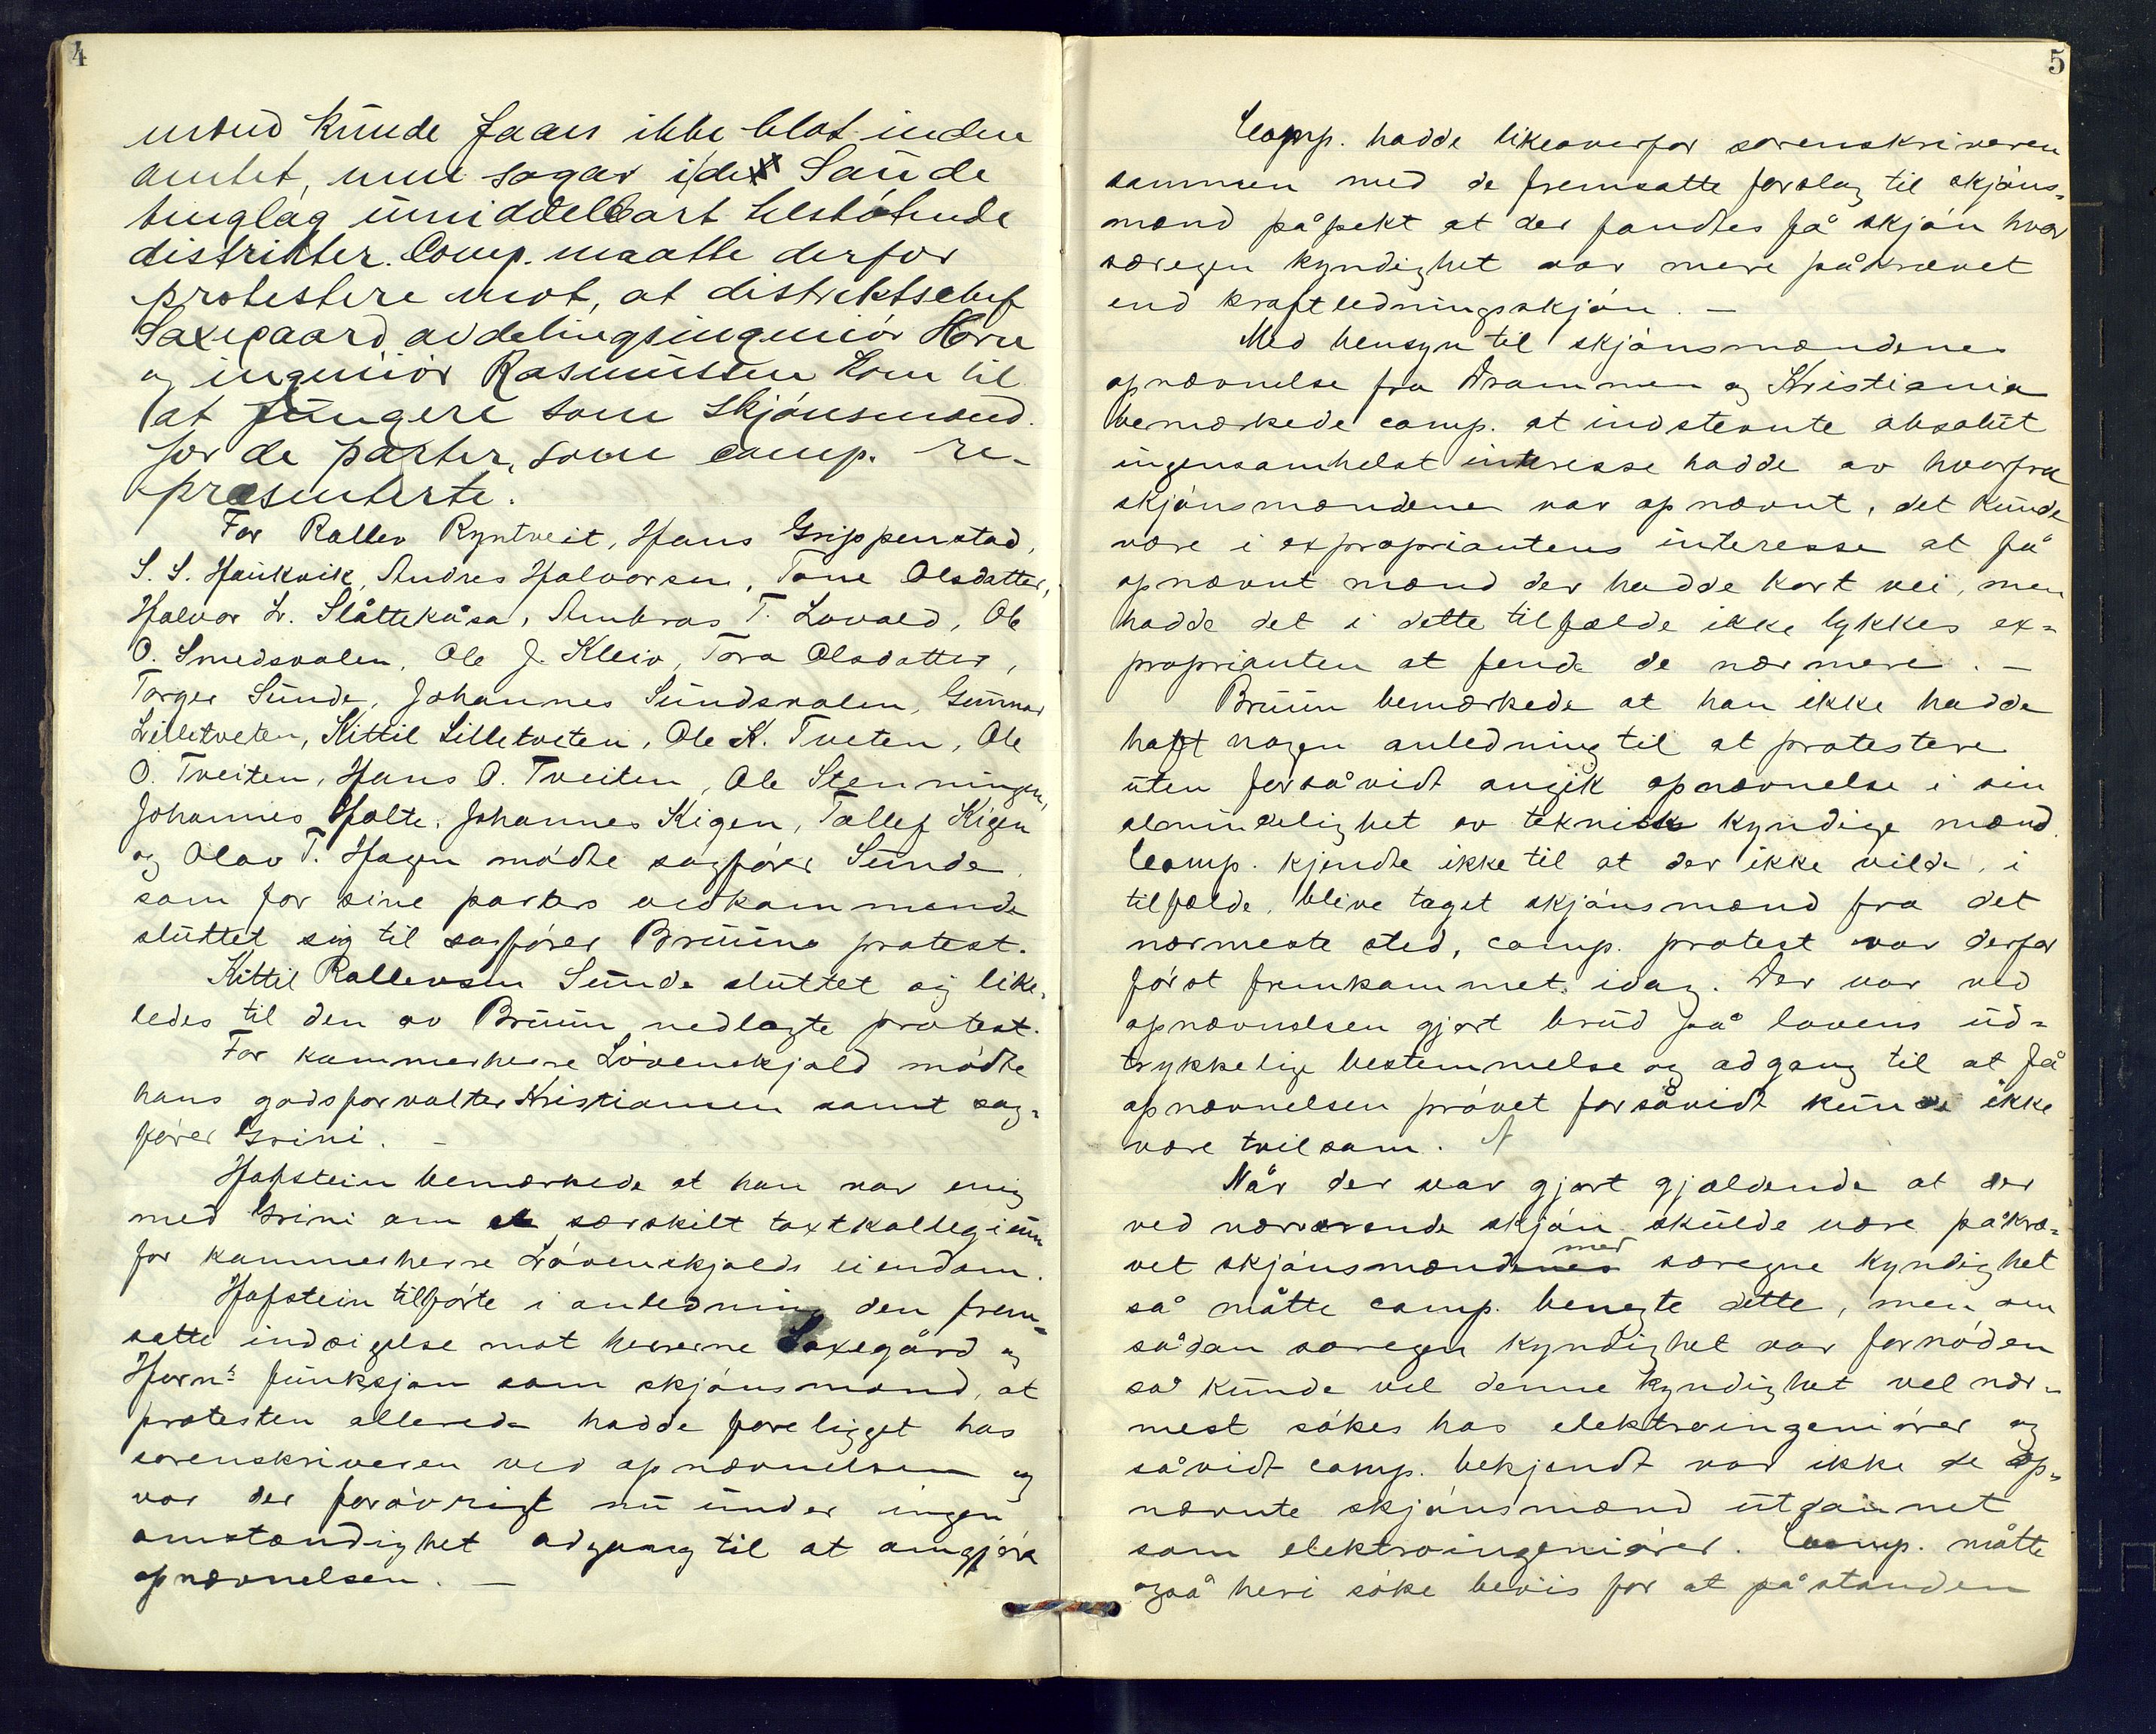 4
mænd kunde faaes ikke blot inden
amtet, men sogar i de Saude
tinglag umiddelbart tilstötende
distrikter. Comp. maatte derfor
protestere mot, at distriktschef
Saxegaard avdelingsingeniör Horn
og ingeniör Rasmussen kom til
at fungere som skjönsmænd
for de parter, som comp. re-
præsenterte.
For Rollev Ryntveit, Hans Grippenstad,
S. S. Haukvik, Andres Halvorsen, Tone Olsdatter,
Halvor Lr. Slåttekåsa, Ambros T. Lovald, Ole
O. Smedsvalen, Ole J. Kleiv, Tora Olsdatter,
Torger Sunde, Johannes Sundsvalen, Gunnar
Lilletveten, Kittil Lilletveten, Ole K. Tveten, Ole
O. Tveiten, Hans O. Tveiten, Ole Stenningen,
Johannes Holte, Johannes Kigen, Tallef Kigen
og Olav T. Hagen mödte sagförer Sunde
som for sine parters vedkommende
sluttet sig til sagförer Bruuns protest.
Kittil Rollevsen Sunde sluttet sig like-
ledes til den av Bruun nedlagte protest.
For kammerherre Lövenskjold mödte
hans godsforvalter Kristiansen samt sag-
förer Grini. –
Hafstein bemærkede at han var enig
med Grini om et særskilt taxtkollegium
for kammerherre Lövenskjolds eiendom.
Hafstein tilförte i anledning den frem-
satte indsigelse mot herrerne Saxegård og
Horns funksjon som skjönsmænd, at
protesten allerede hadde foreligget hos
sorenskriveren ved opnævnelsen og
var der forövrigt nu under ingen
omstændighet adgang til at omgjöre
opnævnelsen. –
5
Comp. hadde likeoverfor sorenskriveren
sammen med de fremsatte forslag til skjöns-
mænd påpekt at der fandtes få skjön hvor
særegen kyndighet var mere påkrævet
end kraftledningsskjön. –
Med hensyn til skjönsmændenes
opnævnelse fra Drammen og Kristiania
bemærkede comp. at indstevnte absolut
ingensomhelst interesse hadde av hvorfra
skjönsmændene var opnævnt, det kunde
være i expropriantens interesse at få
opnævnt mænd der hadde kort vei, men
hadde det i dette tilfælde ikke lykkes ex-
proprianten at finde de nærmere. –
Bruun bemærkede at han ikke hadde
haft nogen anledning til at protestere
uten forsåvidt angik opnævnelse i sin
almindelighet av teknisk kyndige mænd.
Comp. kjendte ikke til at der ikke vilde, i
tilfælde, blive taget skjönsmænd fra det
nærmeste sted, comp. protest var derfor
först fremkommet idag. Der var ved
opnævnelsen gjort brud på lovens ud-
trykkelige bestemmelse og adgang til at få
opnævnelsen prövet forsåvidt kunde ikke
være tvilsom.
Når der var gjort gjældende at der
ved nærværende skjön skulde være påkræ-
vet skjönsmænd med særegne kyndighet
så måtte comp. benegte dette, men om
sådan særegen kyndighet var fornöden
så kunde vel denne kyndighet vel nær-
mest sökes hos elektroingeniörer og
såvidt comp. bekjendt var ikke de op-
nævnte skjönsmænd utdannet
som elektroingeniörer. Comp. måtte
også heri söke beviis for at påstanden